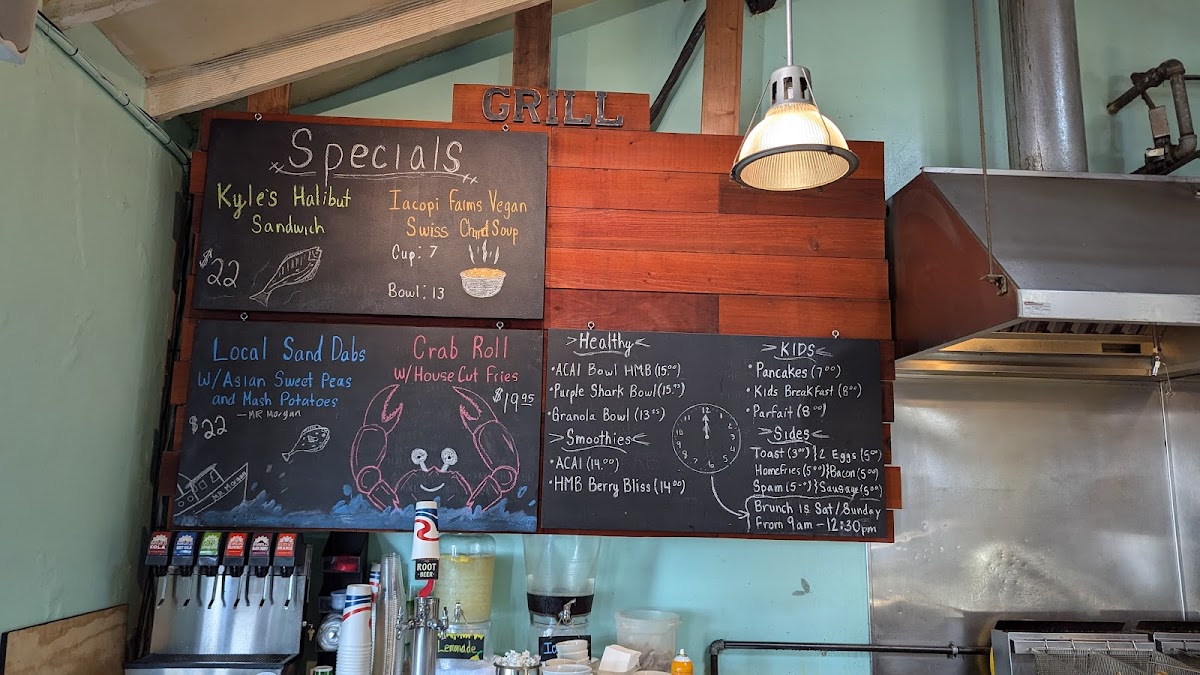 GRILL
Specials
Kyle's Halibut
Sandwich
$22
Iacopi Farms Vegan
Swiss Chard Soup
Cup: 7
Bowl: 13
Local Sand Dabs
W/Asian Sweet Peas
and Mash Potatoes
—MR Morgan
$22
MR Morgan
Crab Roll
W/House Cut Fries
$19.95
>Healthy<
•ACAI Bowl HMB (15.00)
•Purple Shark Bowl (15.00)
•Granola Bowl (13.00)
>Smoothies<
•ACAI (14.00)
•HMB Berry Bliss (14.00)
12
1
2
3
4
5
6
7
8
9
10
11
>KIDS<
•Pancakes (7.00)
•Kids Breakfast (8.00)
•Parfait (8.00)
>Sides<
Toast (3.00) } 2 Eggs (5.00)
HomeFries (5.00) } Bacon (5.00)
Spam (5.00) } Sausage (5.00)
Brunch is Sat/Sunday
From 9am – 12:30pm
COLA
ROOT
BEER
Lemonade